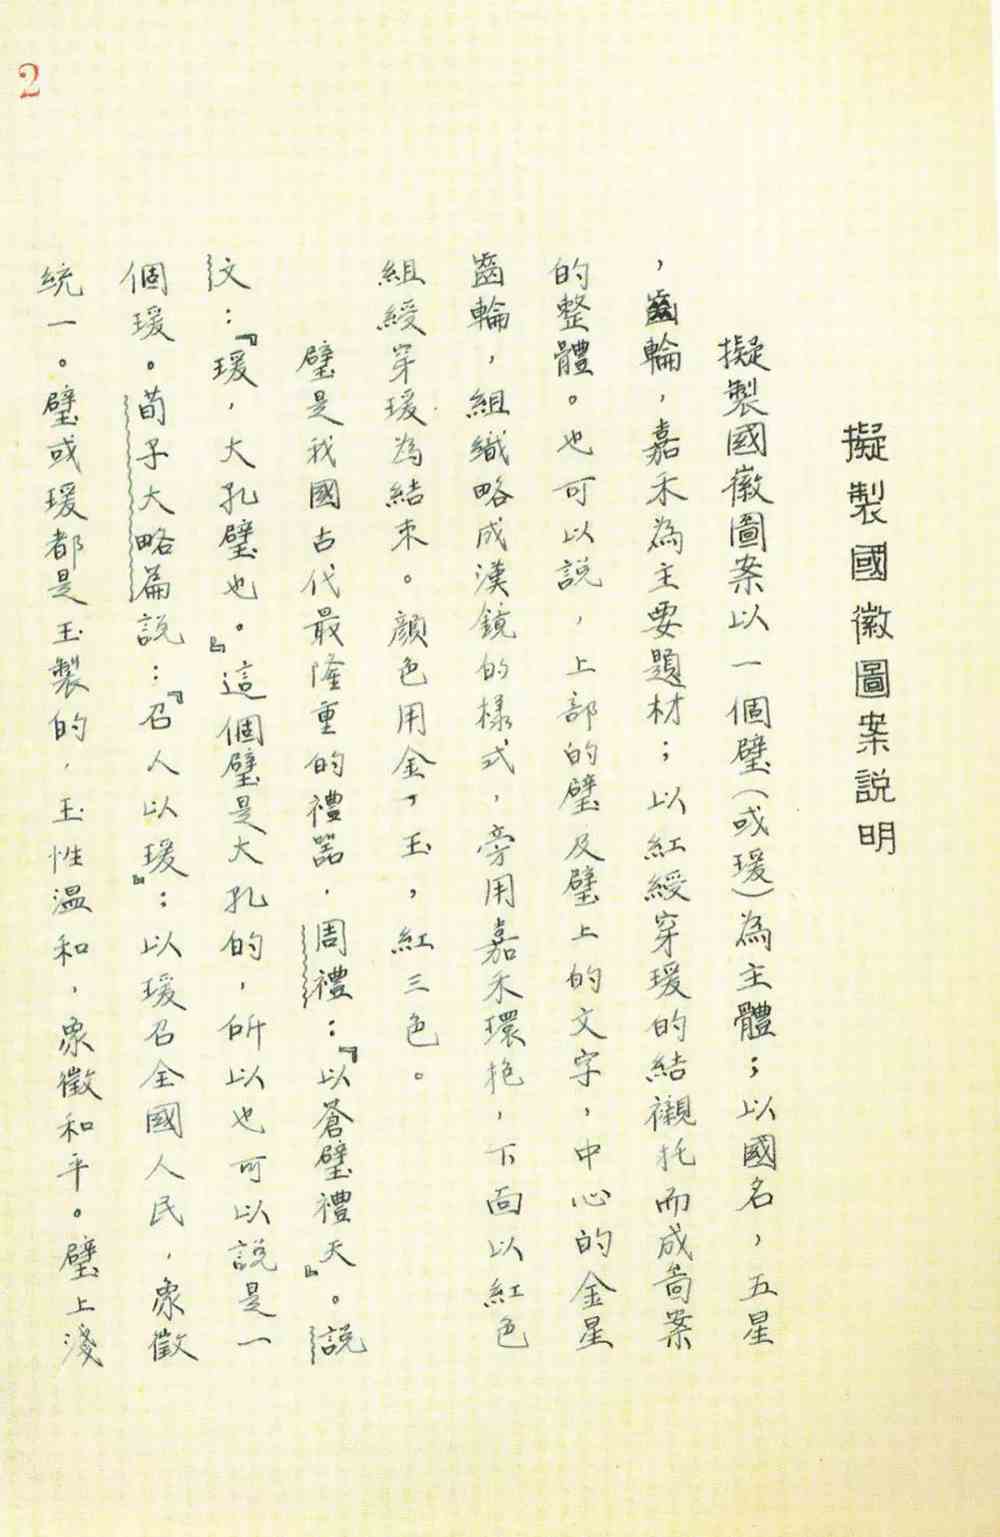 2
擬製國徽圖案説明
擬製國徽圖案以一個璧（或瑗）為主體；以國名，五星
，齒輪，嘉禾為主要題材；以紅綬穿瑗的結襯托而成啚案
的整體。也可以説，上部的璧及璧上的文字，中心的金星
齒輪，組織略成漢鏡的樣式，旁用嘉禾環抱，下面以紅色
組綬穿瑗為結束。顏色用金，玉，紅三色。
璧是我國古代最隆重的禮器．周禮：『以蒼璧禮天』。説
文：『瑗，大孔璧也。』這個璧是大孔的，所以也可以説是一
個瑗。荀子大略篇説：『召人以瑗』：以瑗召全國人民，象徵
統一。璧或瑗都是玉製的，玉性溫和，象徵和平。璧上淺